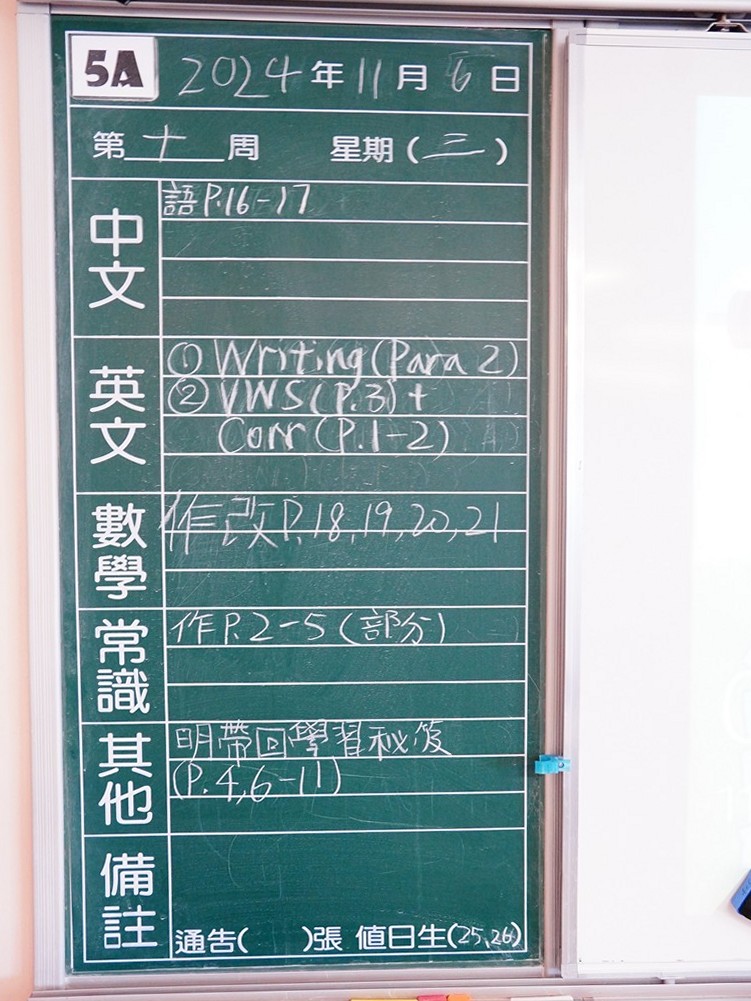 5A 2024年11月6日
第十周 星期(三)
中文 語P.16-17
英文 ① Writing (Para 2)
② VWS (P.3) +
Corr (P.1-2)
數學 作改P.18,19,20,21
常識 作P.2-5(部分)
其他 明帶回學習秘笈
(P.4,6-11)
備註
通告( )張 值日生(25,26)